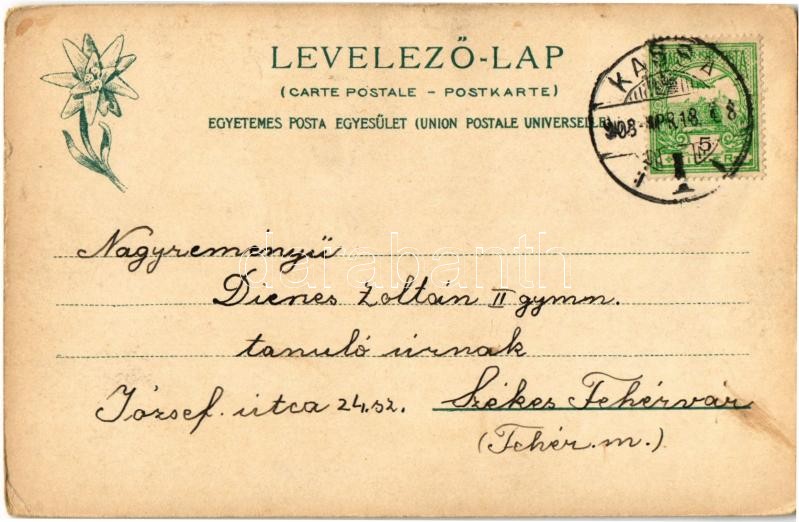 LEVELEZŐ-LAP
(CARTE POSTALE – POSTKARTE)
EGYETEMES POSTA EGYESÜLET (UNION POSTALE UNIVERSELLE)
KASSA
908 APR. 18
5
1
Nagyreményű
Dienes Zoltán II gymn.
tanuló úrnak
József. utca 24. sz. Székes Fehérvár
(Fehér. m.)
darabanth